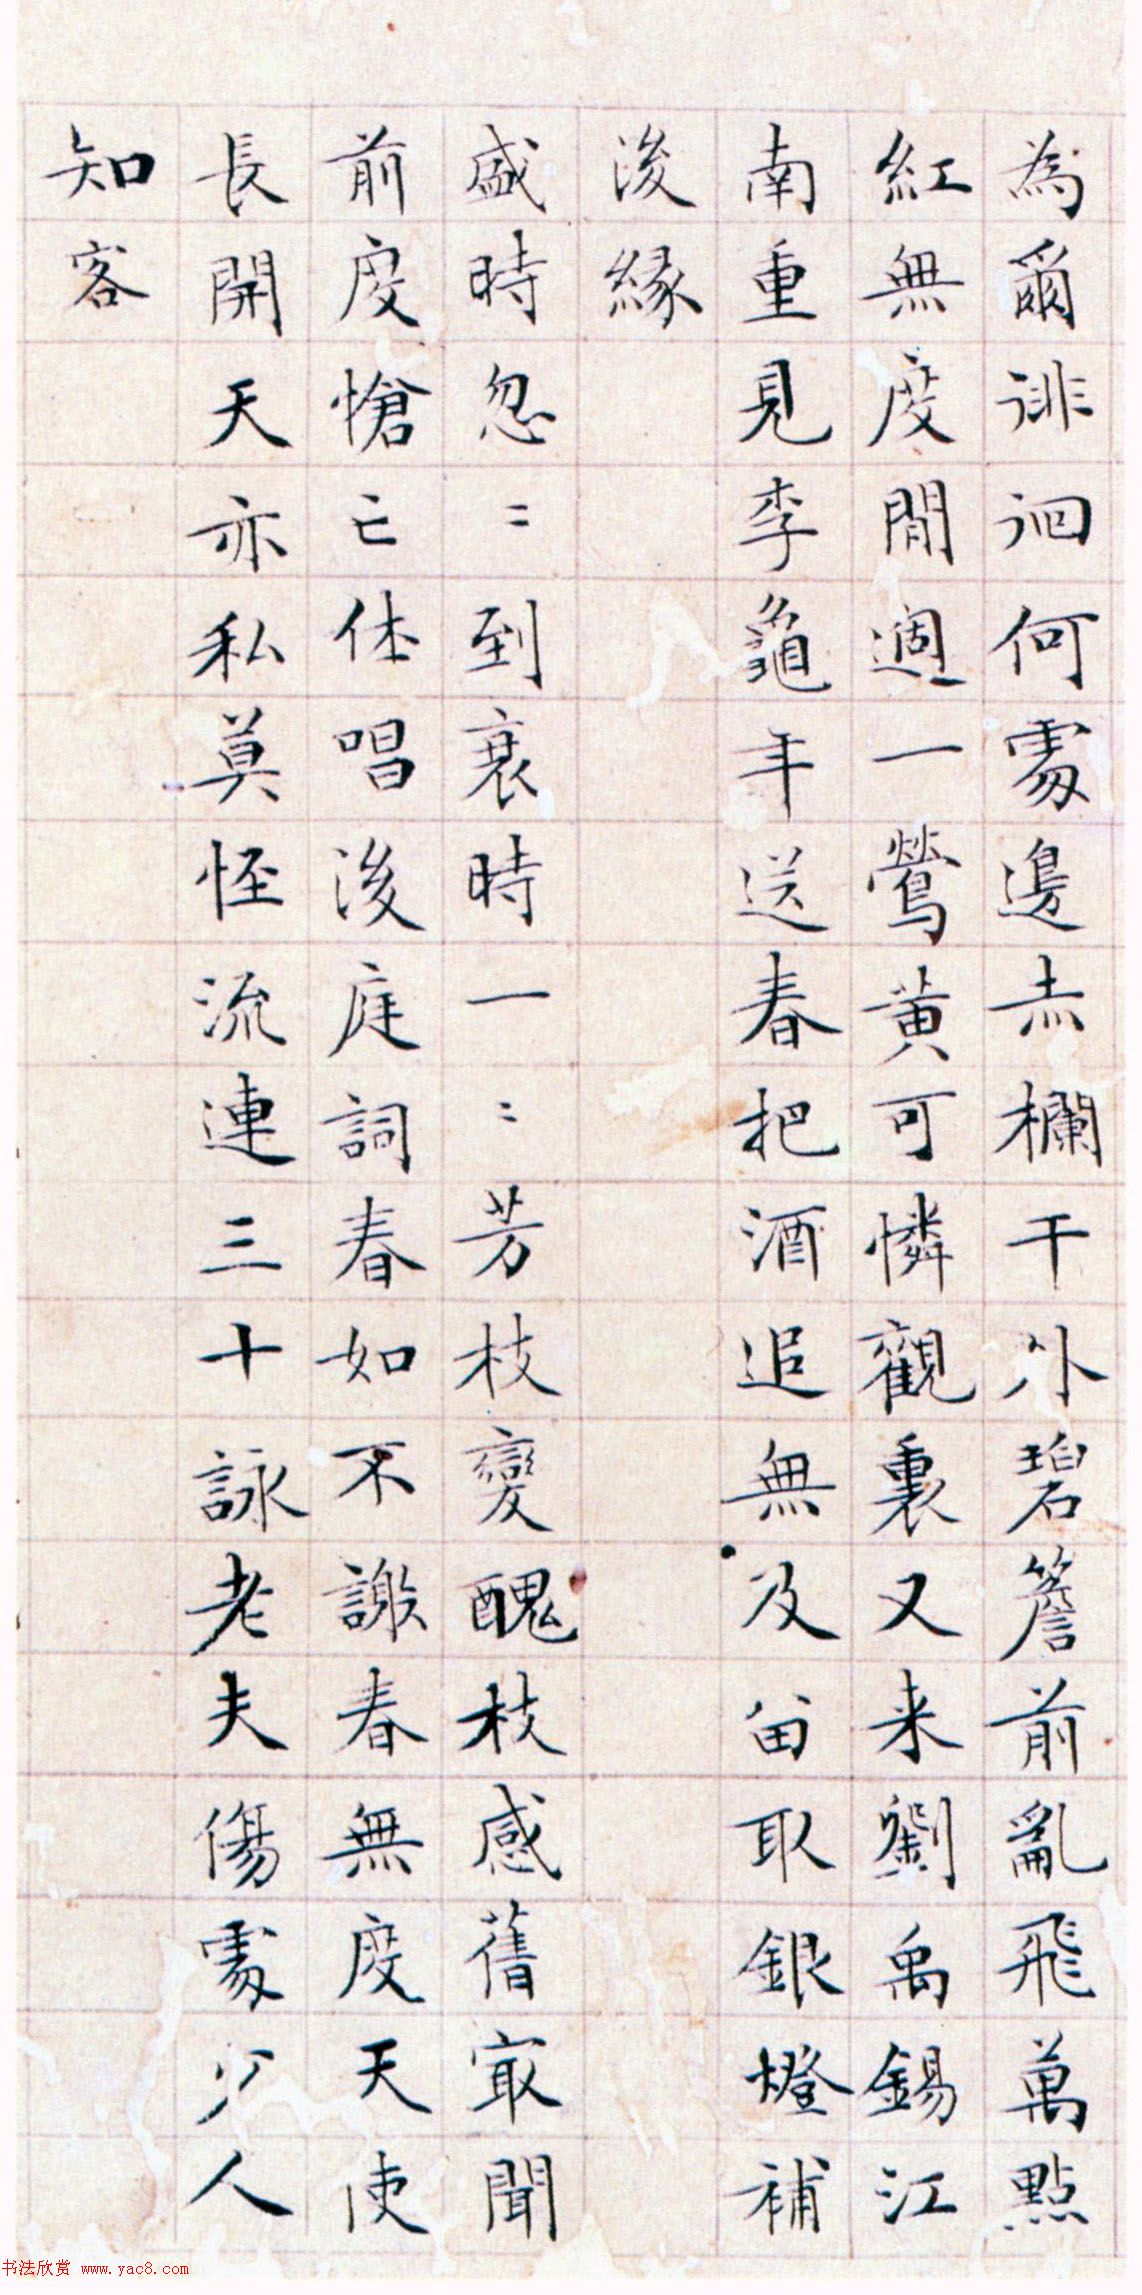 為爾徘徊何處邊赤欄干外碧簷前亂飛萬點
紅無度閒過一鶯黃可憐觀裏又来劉禹錫江
南重見李龜年送春把酒追無及畄取銀燈補
後緣
盛時忽〻到衰時一〻芳枝變醜枝感舊㝡聞
前度愴亡休唱後庭詞春如不謝春無度天使
長開天亦私莫怪流連三十詠老夫傷處少人
知客
书法欣赏 www.yac8.com